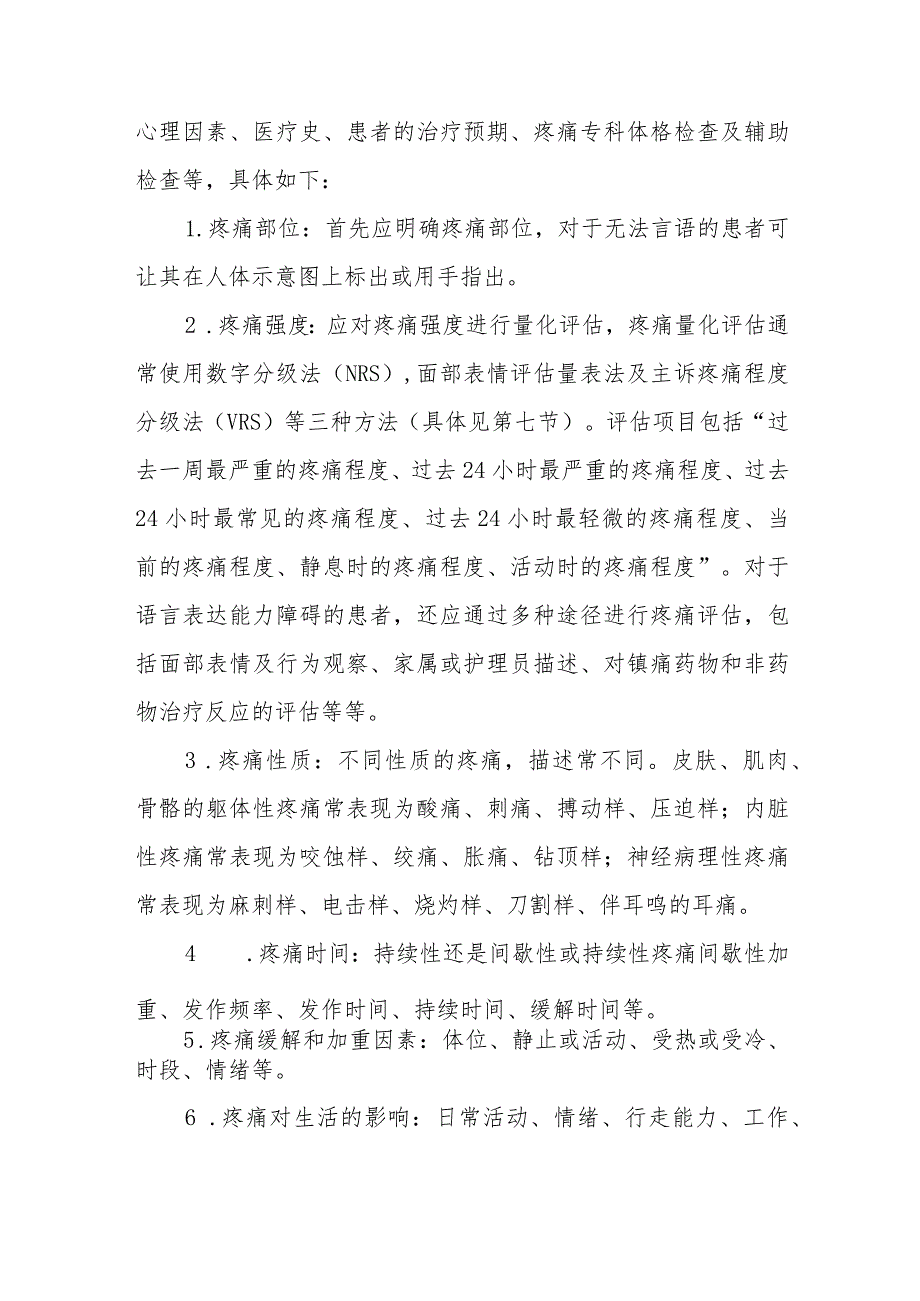 心理因素、医疗史、患者的治疗预期、疼痛专科体格检查及辅助
检查等，具体如下：
1.疼痛部位：首先应明确疼痛部位，对于无法言语的患者可
让其在人体示意图上标出或用手指出。
2.疼痛强度：应对疼痛强度进行量化评估，疼痛量化评估通
常使用数字分级法（NRS）,面部表情评估量表法及主诉疼痛程度
分级法（VRS）等三种方法（具体见第七节）。评估项目包括“过
去一周最严重的疼痛程度、过去24小时最严重的疼痛程度、过去
24小时最常见的疼痛程度、过去24小时最轻微的疼痛程度、当
前的疼痛程度、静息时的疼痛程度、活动时的疼痛程度”。对于
语言表达能力障碍的患者，还应通过多种途径进行疼痛评估，包
括面部表情及行为观察、家属或护理员描述、对镇痛药物和非药
物治疗反应的评估等等。
3.疼痛性质：不同性质的疼痛，描述常不同。皮肤、肌肉、
骨骼的躯体性疼痛常表现为酸痛、刺痛、搏动样、压迫样；内脏
性疼痛常表现为咬蚀样、绞痛、胀痛、钻顶样；神经病理性疼痛
常表现为麻刺样、电击样、烧灼样、刀割样、伴耳鸣的耳痛。
4 .疼痛时间：持续性还是间歇性或持续性疼痛间歇性加
重、发作频率、发作时间、持续时间、缓解时间等。
5.疼痛缓解和加重因素：体位、静止或活动、受热或受冷、
时段、情绪等。
6.疼痛对生活的影响：日常活动、情绪、行走能力、工作、